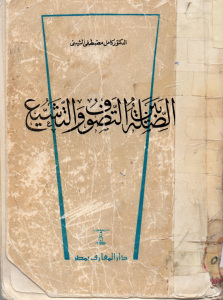 الدكتور كامل مصطفى الشيبي
الصلة بين التصوف والتشيع
دار المعارف بمصر